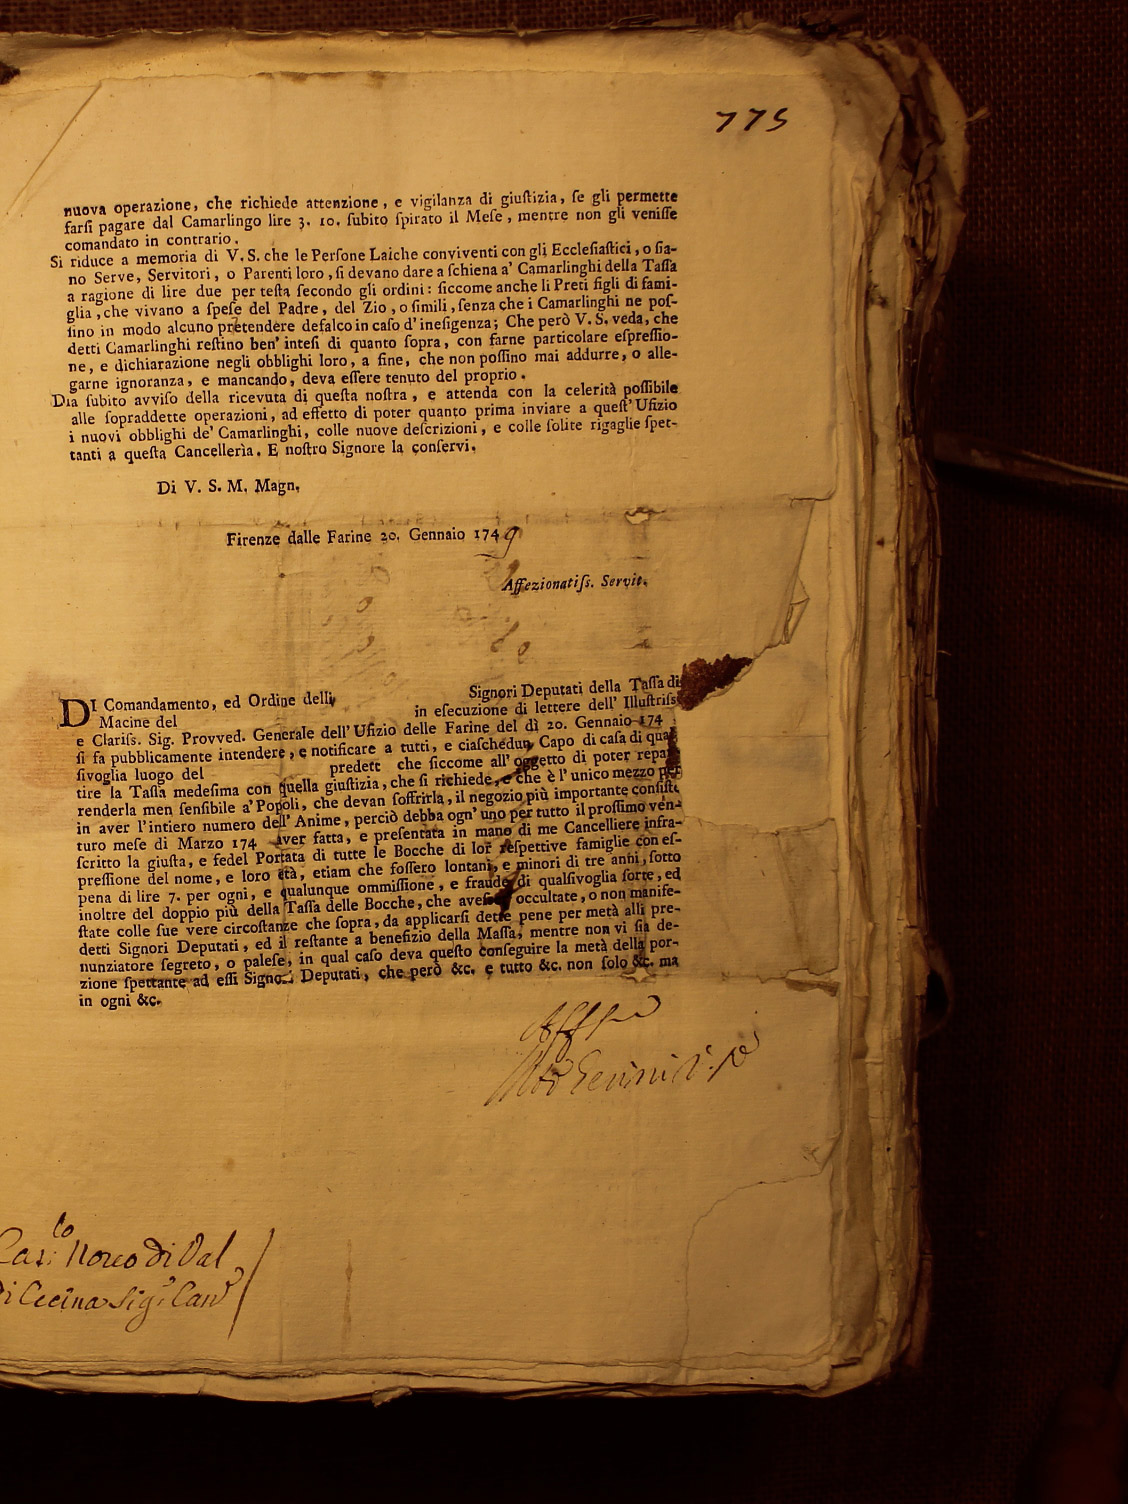 775
nuova operazione, che richiede attenzione, e vigilanza di giuſtizia, ſe gli permette
farſi pagare dal Camarlingo lire 3. 10. ſubito ſpirato il Meſe, mentre non gli veniſſe
comandato in contrario.
Si riduce a memoria di V. S. che le Perſone Laiche conviventi con gli Eccleſiaſtici, o ſia-
no Serve, Servitori, o Parenti loro, ſi devano dare a ſchiena a' Camarlinghi della Taſſa
a ragione di lire due per teſta ſecondo gli ordini: ſiccome anche li Preti figli di fami-
glia, che vivano a ſpeſe del Padre, del Zio, o ſimili, ſenza che i Camarlinghi ne poſ-
ſino in modo alcuno pretendere defalco in caſo d'ineſigenza; Che però V. S. veda, che
detti Camarlinghi reſtino ben' inteſi di quanto ſopra, con farne particolare eſpreſſio-
ne, e dichiarazione negli obblighi loro, a fine, che non poſſino mai addurre, o alle-
garne ignoranza, e mancando, deva eſſere tenuto del proprio.
Dia ſubito avviſo della ricevuta di queſta noſtra, e attenda con la celerità poſſibile
alle ſopraddette operazioni, ad effetto di poter quanto prima inviare a queſt' Ufizio
i nuovi obblighi de' Camarlinghi, colle nuove deſcrizioni, e colle ſolite rigaglie ſpet-
tanti a queſta Cancellerìa. E noſtro Signore la conſervi.
Di V. S. M. Magn.
Firenze dalle Farine 20. Gennaio 1749
Affezionatiſs. Servit.
DI Comandamento, ed Ordine delli Signori Deputati della Taſſa di
Macine del in eſecuzione di lettere dell' Illuſtriſs.
e Clariſs. Sig. Provved. Generale dell' Ufizio delle Farine del dì 20. Gennaio 174
ſi fa pubblicamente intendere, e notificare a tutti, e ciaſchedun Capo di caſa di qual
ſivoglia luogo del predett che ſiccome all' oggetto di poter repar
tire la Taſſa medeſima con quella giuſtizia, che ſi richiede, e che è l' unico mezzo per
renderla men ſenſibile a' Popoli, che devan ſoffrirla, il negozio più importante conſiſte
in aver l' intiero numero dell' Anime, perciò debba ogn' uno per tutto il proſſimo ven-
turo meſe di Marzo 174 aver fatta, e preſentata in mano di me Cancelliere infra-
ſcritto la giuſta, e fedel Portata di tutte le Bocche di lor reſpettive famiglie con eſ-
preſſione del nome, e loro età, etiam che foſſero lontani, e minori di tre anni, ſotto
pena di lire 7. per ogni, e qualunque ommiſſione, e fraude di qualſivoglia ſorte, ed
inoltre del doppio più della Taſſa delle Bocche, che aveſſ occultate, o non manife-
ſtate colle ſue vere circoſtanze che ſopra, da applicarſi dette pene per metà alli pre-
detti Signori Deputati, ed il reſtante a benefizio della Maſſa, mentre non vi ſia de-
nunziatore ſegreto, o paleſe, in qual caſo deva queſto conſeguire la metà della por-
zione ſpettante ad eſſi Signori Deputati, che però &c. e tutto &c. non ſolo &c. ma
in ogni &c.
Cas:lo Noveo di Val
di Cecina Sig:r Canr